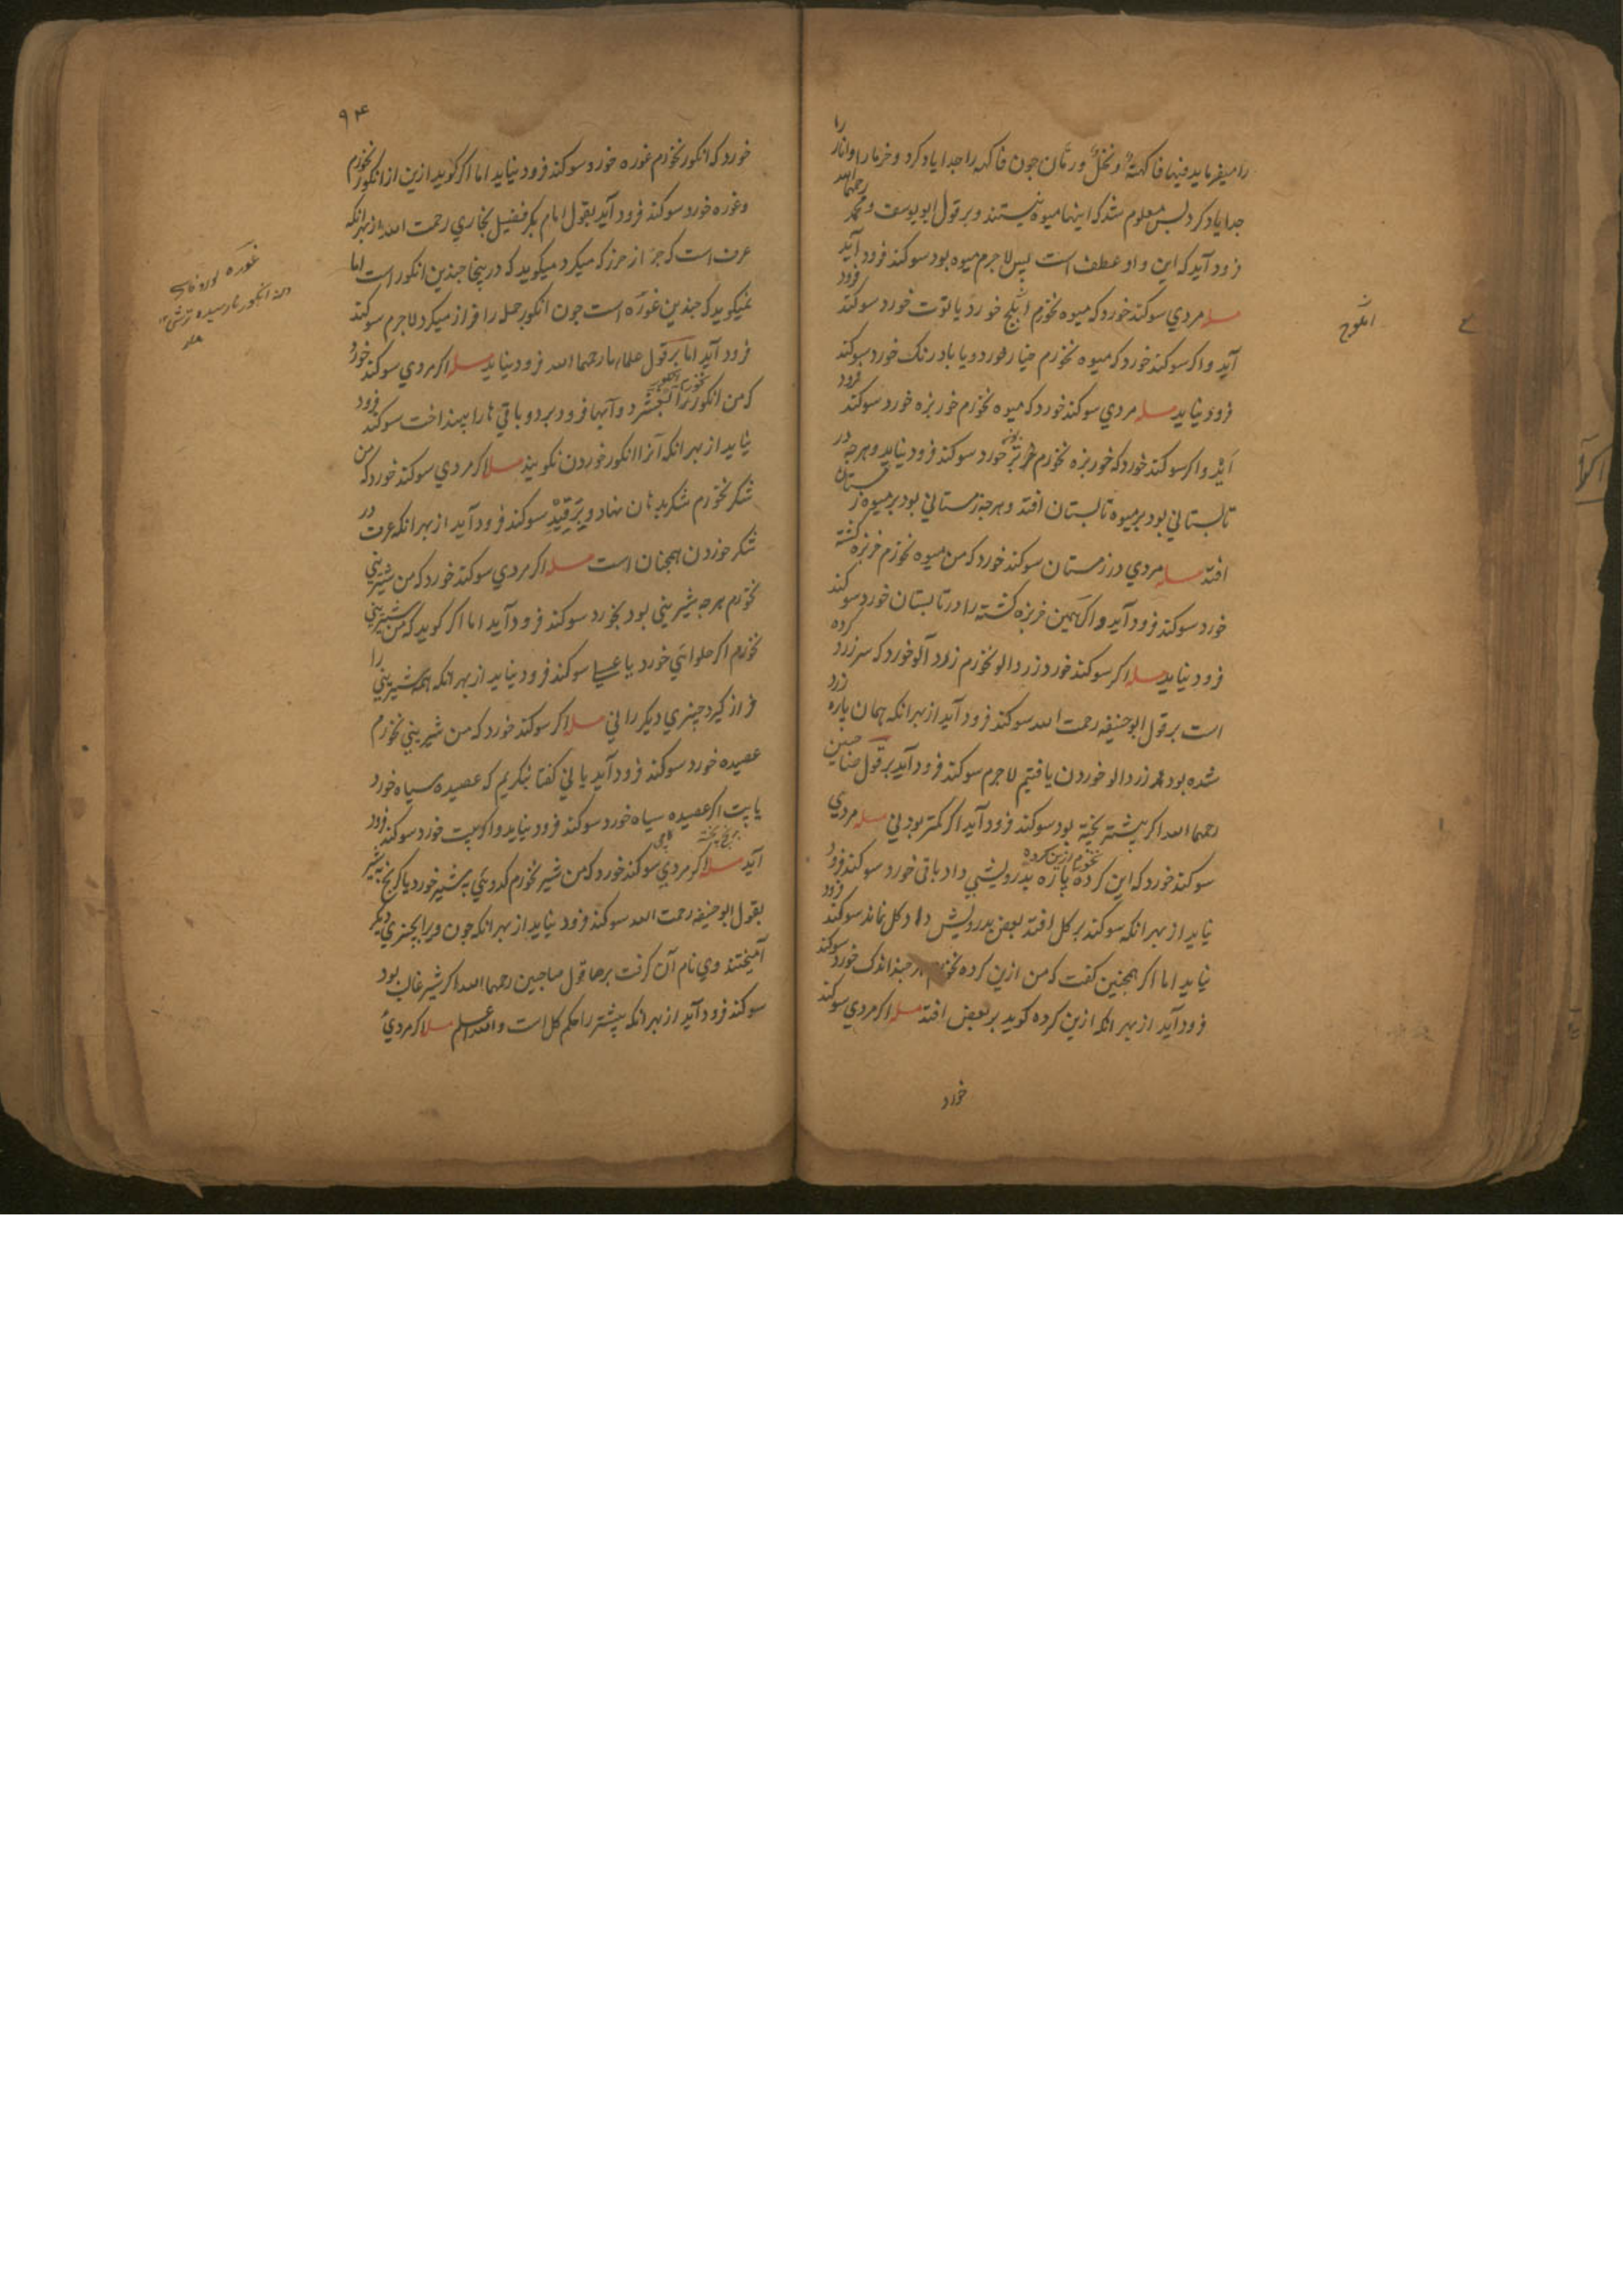 را میفرماید فیها فاکهة و نخل و رمان جون فاکهه را جدا یاد کرد و خرما را و انار را
جدا یاد کرد بس معلوم شد که اینها میوه نیستند و بر قول ابو یوسف و محمد رحمهما الله
فرود آید که این واو عطف است پس لاجرم میوه بود سوکند فرود آید
مسله مردی سوکند خورد که میوه نخورم خورد یا توت خورد سوکند فرود
آید و اکر سوکند خورد که میوه نخورم خیار خورد و یا بادرنک خورد سوکند
فرود نیاید مسله مردی سوکند خورد که میوه نخورم خوربزه خورد سوکند فرود
آید و اکر سوکند خورد که خوربزه نخورم خورد سوکند فرود نیاید و هرجه در
تابستانی بود بر میوه تابستان افتد و هرجه زمستانی بود بر میوه زمستان
افتد مسله مردی در زمستان سوکند خورد که من میوه نخورم خربزه کشته
خورد سوکند فرود آید و اکر همین خربزه کشته را در تابستان خورد سوکند
فرود نیاید مسله اکر سوکند خورد زردالو نخورم زرد آلو خورد که سر زرد کرده
است بر قول ابو حنیفه رحمت الله سوکند فرود آید از بهر انکه همان باره زرد
شده بود زردالو خوردن یافتیم لاجرم سوکند فرود آید بر قول صاحبین
رحمهما الله اکر بیشتر پخته بود سوکند فرود آید اکر کمتر بود نی مسله مردی
سوکند خورد که این کرده نخورم ازین کرده پاره بدرویشی داد باقی خورد سوکند فرود
نیاید از بهر انکه سوکند بر کل افتد بعض بدرویش داد کل نماند سوکند فرود
نیاید اما اکر همجنین کفت که من ازین کرده نخورم هر جند اندک خورد سوکند
فرود آید از بهر انکه ازین کرده کوید بر بعض افتد مسله اکر مردی سوکند
خورد
۹۴
خورد که انکور نخورم غوره خورد سوکند فرود نیاید اما اکر کوید ازین از انکور نخورم
و غوره خورد سوکند فرود آید بقول امام بکر فضیل بخاری رحمت الله از بهر انکه
عرف است که از حرز که میکرد میکوید که درینجا جندین انکور است اما
نمیکوید که جندین غوره است جون انکور جمله را فراز میکرد لاجرم سوکند
فرود آید اما بر قول علماء ما رحمهما الله فرود نیاید مسله اکر مردی سوکند خورد
که من انکور نخورم انکور را بفشرد و آبها فرو برد و باقی ها را بینداخت سوکند فرود
نیاید از بهر انکه آنرا انکور خوردن نکویند مسله اکر مردی سوکند خورد که من
شکر نخورم شکر بدهان نهاد و سوکند فرود آید از بهر انکه عرف در
شکر خوردن همجنان است مسله اکر مردی سوکند خورد که من شیرینی
نخورم هرجه شیرینی بود بخورد سوکند فرود آید اما اکر کوید که من شیرینی
نخورم اکر حلوائی خورد یا عسلی سوکند فرود نیاید از بهر انکه همه شیرینی را
فراز کیرد جیزی دیکر را نی مسله اکر سوکند خورد که من شیرینی نخورم
عصیده خورد سوکند فرود آید یا نی کفتا بنکریم که عصیده سیاه خورد
یا اکر عصیده سیاه خورد سوکند فرود نیاید و اکر خورد سوکند فرود
آید مسله اکر مردی سوکند خورد که من شیر نخورم کدوئی بشیر خورد یا کرنج بشیر
بقول ابو حنیفه رحمت الله سوکند فرود نیاید از بهر انکه جون ویرا بجیزی دیکر
آمیختند وی نام آن کرفت بر قول صاحبین رحمهما الله اکر شیر غالب بود
سوکند فرود آید از بهر انکه بیشتر را حکم کل است والله اعلم مسله اکر مردی
غوره
انکور نارسیده ترش